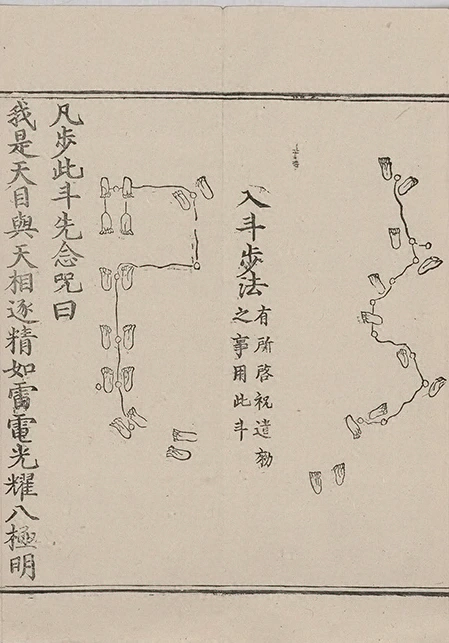 入斗步法
有所啓祝遣劾
之事用此斗
凡步此斗先念咒曰
我是天目與天相逐精如雷電光耀八極明